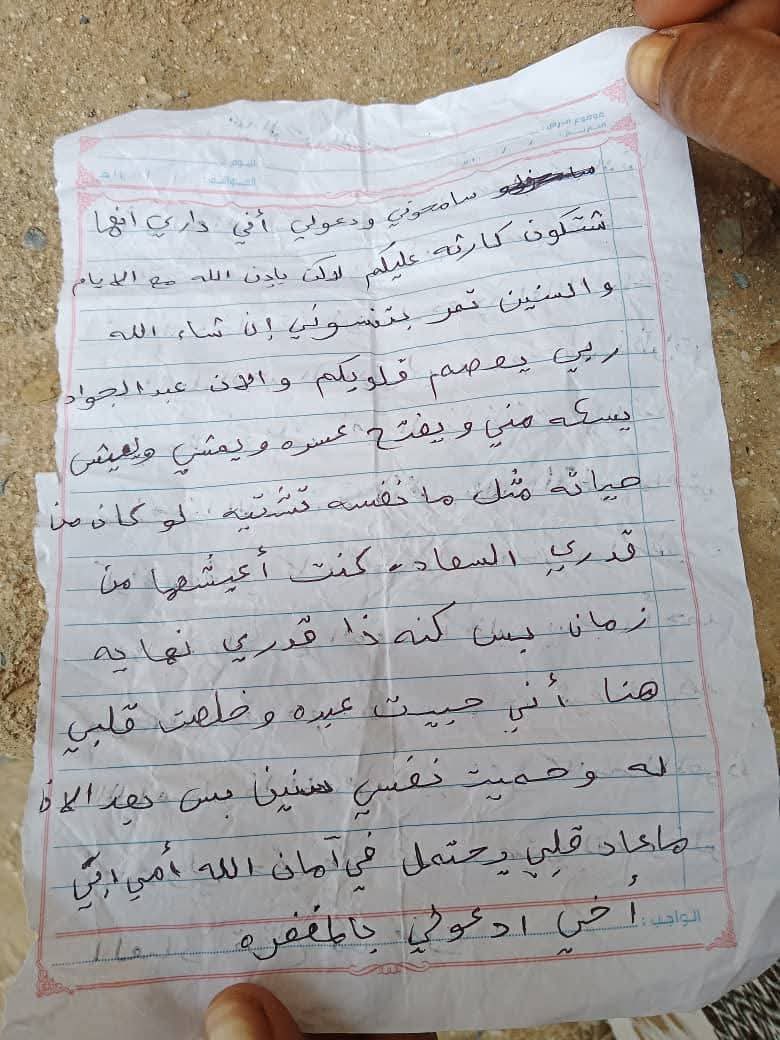 موضوع الدرس:
اليوم:
سامحوني ودعولي أني داري انها
شتكون كارثه عليكم لاكن باذن الله مع الايام
والسنين تمر بتنسوني إن شاء الله
ربي يعصم قلوبكم والان عبدالجواد
يسكه مني ويفتح عسره ويمشي ويعيش
حياته مثل ما نفسه تشتيه لو كان من
قدري السعاده كنت أعيشها من
زمان بس كنه ذا قدري نهايه
هنا أني حبيت عبده وخلصت قلبي
له وحميت نفسي سنين بس بعد الان
ماعاد قلبي يحتمل في آمان الله أمي
الواجب: أخي ادعولي بالمغفره